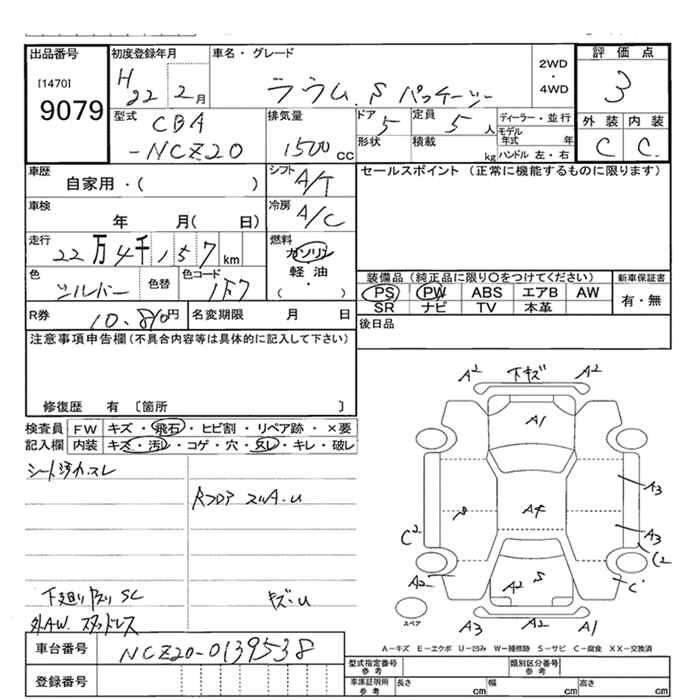 出品番号 初度登録年月 車名・グレード 2WD・4WD 評価点
[1470]
9079
H22 2月 ラウム Sパッケージ 3
型式 CBA-NCZ20
排気量 1500cc
ドア 5 定員 5人 ディーラー・並行
形状 積載 kg モデル年式 年
ハンドル 左・右
外装 内装
C C
車歴 自家用・( )
シフト A/T
セールスポイント (正常に機能するものに限ります)
車検 年 月( 日)
冷房 A/C
走行 22万4千157km
燃料 ガソリン 軽油・( )
色 シルバー 色替 色コード 1F7
装備品 (純正品に限り○をつけてください) 新車保証書
PS PW ABS エアB AW 有・無
SR ナビ TV 本革
R券 10,810円 名変期限 月 日
後日品
注意事項申告欄(不具合内容等は具体的に記入して下さい)
修復歴 有 〔箇所 〕
検査員 FW キズ・飛石・ヒビ割・リペア跡・×要
記入欄 内装 キズ・汚レ・コゲ・穴・スレ・キレ・破レ
シート汚レ スレ
キズ・U
下廻り サビ SC
外AW. スタッドレス
A2 下キズ A2
A1
A3
S A4
A3
C2 C2
A2 A2 S C
A3 A2 A1
スペア
A-キズ E-エクボ U-凹み W-補修跡 S-サビ C-腐食 XX-交換済
車台番号 NCZ20-0139538
登録番号
型式指定番号 参考 類別区分番号 参考
車庫証明用 参考 長さ cm 幅 cm 高さ cm